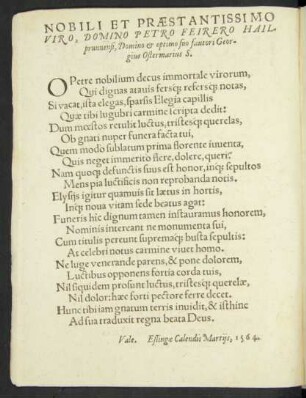 NOBILI ET PRÆSTANTISSIMO
VIRO, DOMINO PETRO FEIRERO HAIL-
prunnensi, Domino & optimo suo fautori Geor-
gius Ostermarius S.
O Petre nobilium decus immortale virorum,
Qui dignas atauis fersq́ refersq́ notas,
Si vacat, ista elegas, sparsis Elegia capillis
Quæ tibi lugubri carmine scripta dedit:
Dum mœstos retulit luctus, tristesq́ querelas,
Ob gnati nuper funera facta tui,
Quem modo sublatum prima florente iuuenta,
Quis neget immerito flere, dolere, queri?
Nam quoq́ defunctis suus est honor, inq́ sepultos
Mens pia luctificis non reprobanda notis.
Elysijs igitur quamuis sit lætus in hortis,
Inq́ noua vitam sede beatus agat:
Funeris hic dignum tamen instauramus honorem,
Nominis intereant ne monumenta sui,
Cum titulis pereunt supremaq́ busta sepultis:
At celebri notus carmine viuet homo.
Ne luge venerande parens, & pone dolorem,
Luctibus opponens fortia corda tuis,
Nil siquidem prosunt luctus, tristesq́ querelæ,
Nil dolor: hæc forti pectore ferre decet.
Hunc tibi iam gnatum terris inuidit, & isthinc
Ad sua traduxit regna beata Deus.
Vale. Eslingæ Calendis Martijs, 1564.